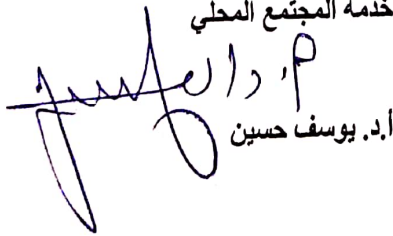 خدمة المجتمع المحلي
أ.د. يوسف حسين